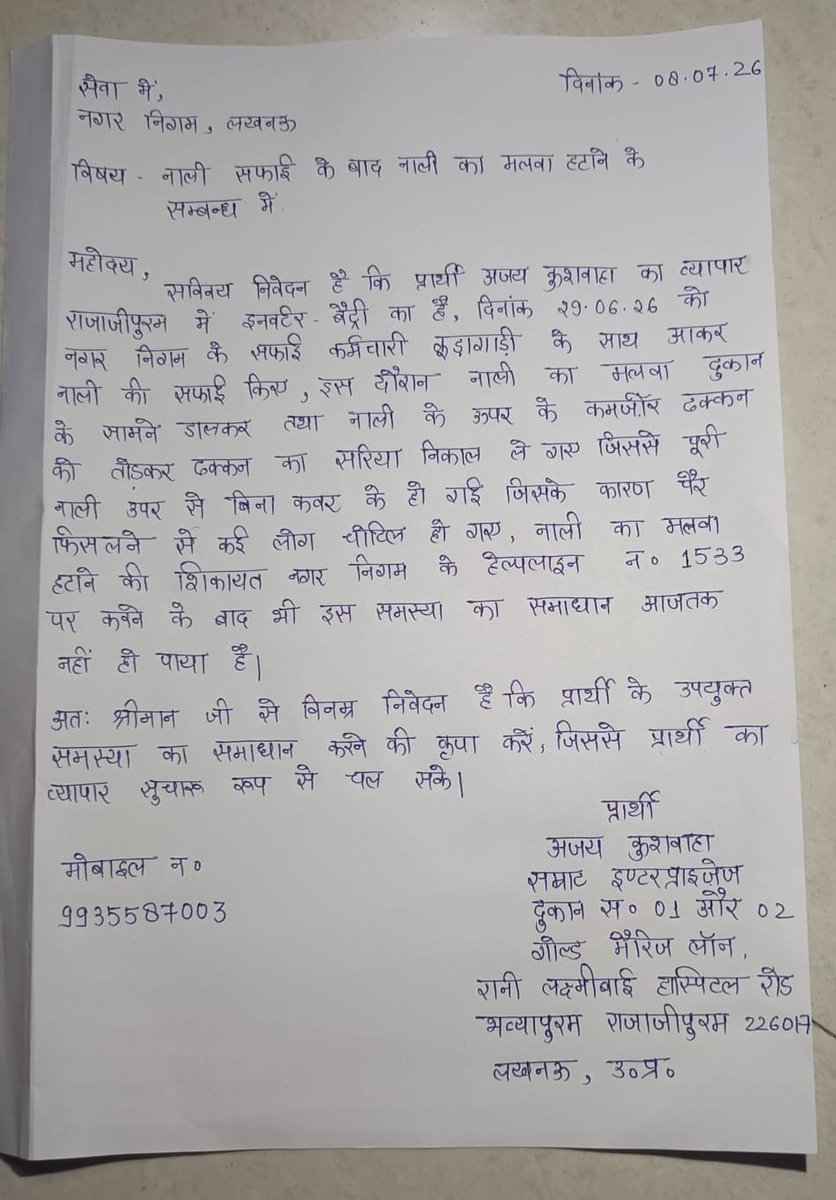 सेवा में,
दिनांक - 08.07.26
नगर निगम, लखनऊ
विषय - नाली सफाई के बाद नाली का मलवा हटाने के
सम्बन्ध में.
महोदय,
सविनय निवेदन है कि प्रार्थी अजय कुशवाहा का व्यापार
राजाजीपुरम में इनवर्टर-बैट्री का है, दिनांक 29.06.26 को
नगर निगम के सफाई कर्मचारी कूड़ागाड़ी के साथ आकर
नाली की सफाई किए, इस दौरान नाली का मलवा दुकान
के सामने डालकर तथा नाली के ऊपर के कमजोर ढक्कन
को तोड़कर ढक्कन का सरिया निकाल ले गए जिससे पूरी
नाली उपर से बिना कवर के हो गई जिसके कारण पैर
फिसलने से कई लोग चोटिल हो गए, नाली का मलवा
हटाने की शिकायत नगर निगम के हेल्पलाइन न० 1533
पर करने के बाद भी इस समस्या का समाधान आजतक
नहीं हो पाया है।
अतः श्रीमान जी से विनम्र निवेदन है कि प्रार्थी के उपयुक्त
समस्या का समाधान करने की कृपा करें, जिससे प्रार्थी का
व्यापार सुचारू रूप से चल सके।
प्रार्थी
अजय कुशवाहा
मोबाइल न०
सम्राट इण्टरप्राइजेज
9935587003
दुकान स० 01 और 02
गोल्ड मैरिज लॉन,
रानी लक्ष्मीबाई हास्पिटल रोड
भव्यापुरम राजाजीपुरम 226017
लखनऊ, उ०प्र०